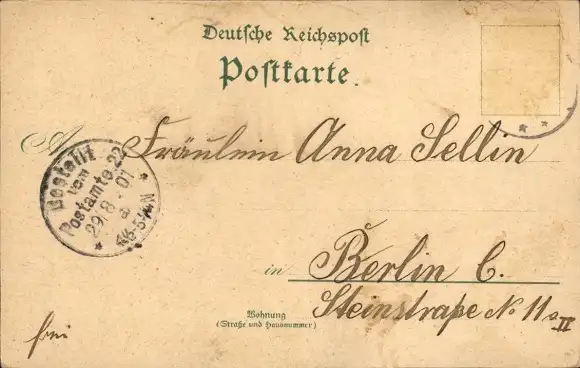 Deutsche Reichspost
Postkarte.
A
Fräulein Anna Sellin
Bestellt
vom
Postamte 22
29/8.01
4½-5½N.
in Berlin C.
Steinstraße No 11a II
Wohnung
(Straße und Hausnummer)
frei